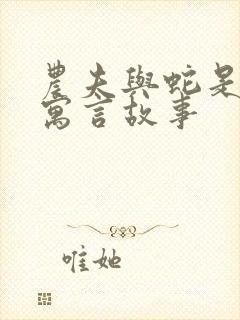 農夫與蛇是
寓言故事
唯她